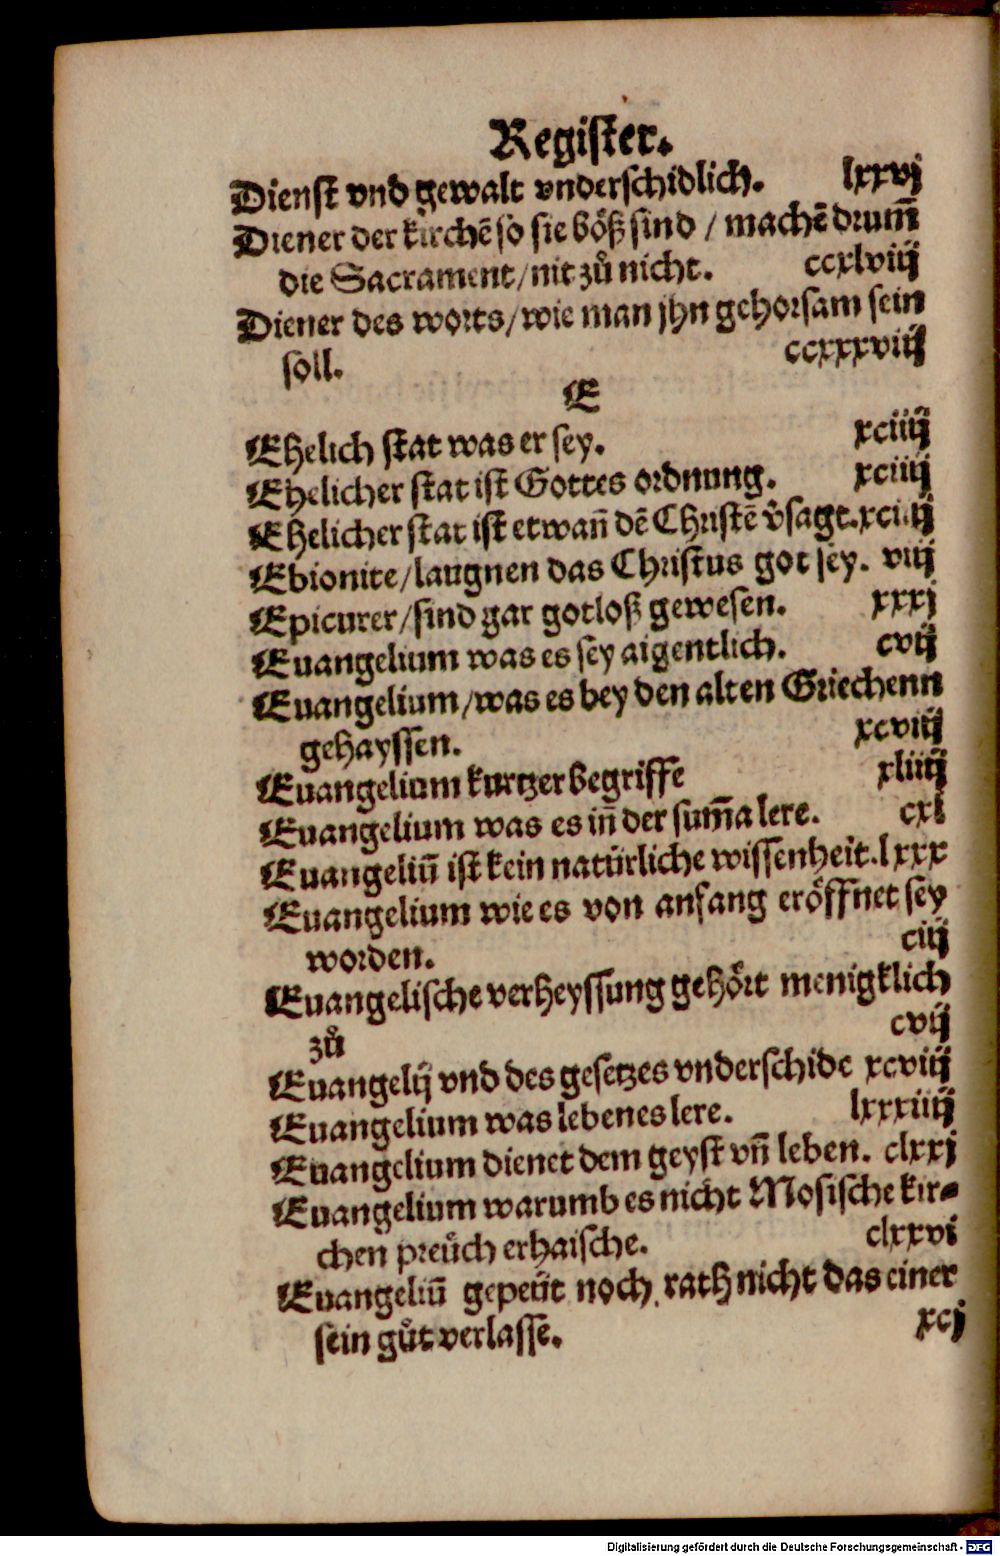 Register.
Dienst vnd gewalt vnderschidlich. lxxvj
Diener der kirchē so sie böß sind / machē drum̄
die Sacrament / nit zů nicht. ccxlviij
Diener des worts / wie man jhn gehorsam sein
soll. ccxxxviij
E
Ehelich stat was er sey. xciiij
Ehelicher stat ist Gottes ordnung. xciiij
Ehelicher stat ist etwañ dē Christē v̂sagt. xciiij
Ebionite / laugnen das Christus got sey. viij
Epicurer / sind gar gotloß gewesen. xxxj
Euangelium was es sey aigentlich. cvij
Euangelium / was es bey den alten Griechenn
gehayssen. xcviij
Euangelium kurtzer begriffe xliiij
Euangelium was es iñ der sum̄a lere. cxl
Euangeliū ist kein natürliche wissenheit. lxxx
Euangelium wie es von anfang eröffnet sey
worden. ciij
Euangelische verheyssung gehört menigklich
zů cvij
Euangelij vnd des gesetzes vnderschide xcviij
Euangelium was lebenes lere. lxxxiiij
Euangelium dienet dem geyst vñ leben. clxxj
Euangelium warumb es nicht Mosische kir⸗
chen preüch erhaische. clxxvi
Euangeliū gepeüt noch rath nicht das einer
sein gůt verlasse. xcj
Digitalisierung gefördert durch die Deutsche Forschungsgemeinschaft - DFG